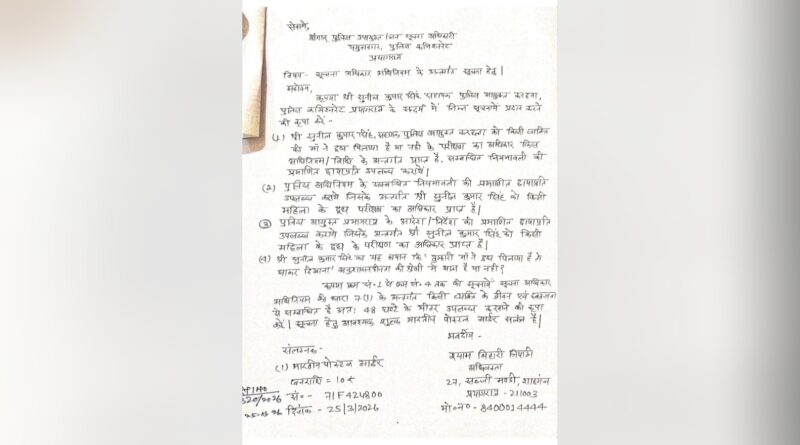 सेवामें,
श्रीमान् पुलिस उपायुक्त /जन सूचना अधिकारी
यमुनानगर, पुलिस कमिश्नरेट
प्रयागराज
विषय- सूचना अधिकार अधिनियम के अन्तर्गत सूचना हेतु |
महोदय,
कृपया श्री सुनील कुमार सिंह, सहायक पुलिस आयुक्त करछना,
पुलिस कमिश्नरेट प्रयागराज के सन्दर्भ में निम्न सूचनायें प्रदान करने
की कृपा करें -
(1) श्री सुनील कुमार सिंह, सहायक पुलिस आयुक्त करछना को किसी व्यक्ति
की माँ ने दूध पिलाया है या नही के परीक्षण का अधिकार किस
अधिनियम / विधि के अन्तर्गत प्राप्त है, सम्बन्धित नियमावली की
प्रमाणित छायाप्रति उपलब्ध करायें |
(2) पुलिस अधिनियम के सम्बन्धित नियमावली की प्रमाणित छायाप्रति
उपलब्ध करायें जिसके अन्तर्गत श्री सुनील कुमार सिंह को किसी
महिला के दूध परीक्षण का अधिकार प्राप्त है |
(3) पुलिस आयुक्त प्रयागराज के आदेश / निर्देश की प्रमाणित छायाप्रति
उपलब्ध करायें जिसके अन्तर्गत श्री सुनील कुमार सिंह को किसी
महिला के दूध के परीक्षण का अधिकार प्राप्त है |
(4) श्री सुनील कुमार सिंह का यह बयान कि 'तुम्हारी माँ ने दूध पिलाया है तो
आकर दिखाना' अनुशासनहीनता की श्रेणी में आता है या नही ?
कृपया क्रम सं. 1 से क्रम सं. 4 तक की सूचनायें सूचना अधिकार
अधिनियम की धारा 7(1) के अन्तर्गत किसी व्यक्ति के जीवन एवं स्वतन्त्रता
से सम्बन्धित है अतः 48 घण्टे के भीतर उपलब्ध कराने की कृपा
करें | सूचना हेतु आवश्यक शुल्क भारतीय पोस्टल आर्डर संलग्न है |
भवदीय -
संलग्नक-
(1) भारतीय पोस्टल आर्डर
धनराशि = 10 ₹
सं०- 71F424800
दिनांक - 25/3/2026
श्याम बिहारी तिवारी
अधिवक्ता
27, सब्जी मण्डी, शाहगंज
प्रयागराज - 211003
मो० न० - 8400014444
320/2026